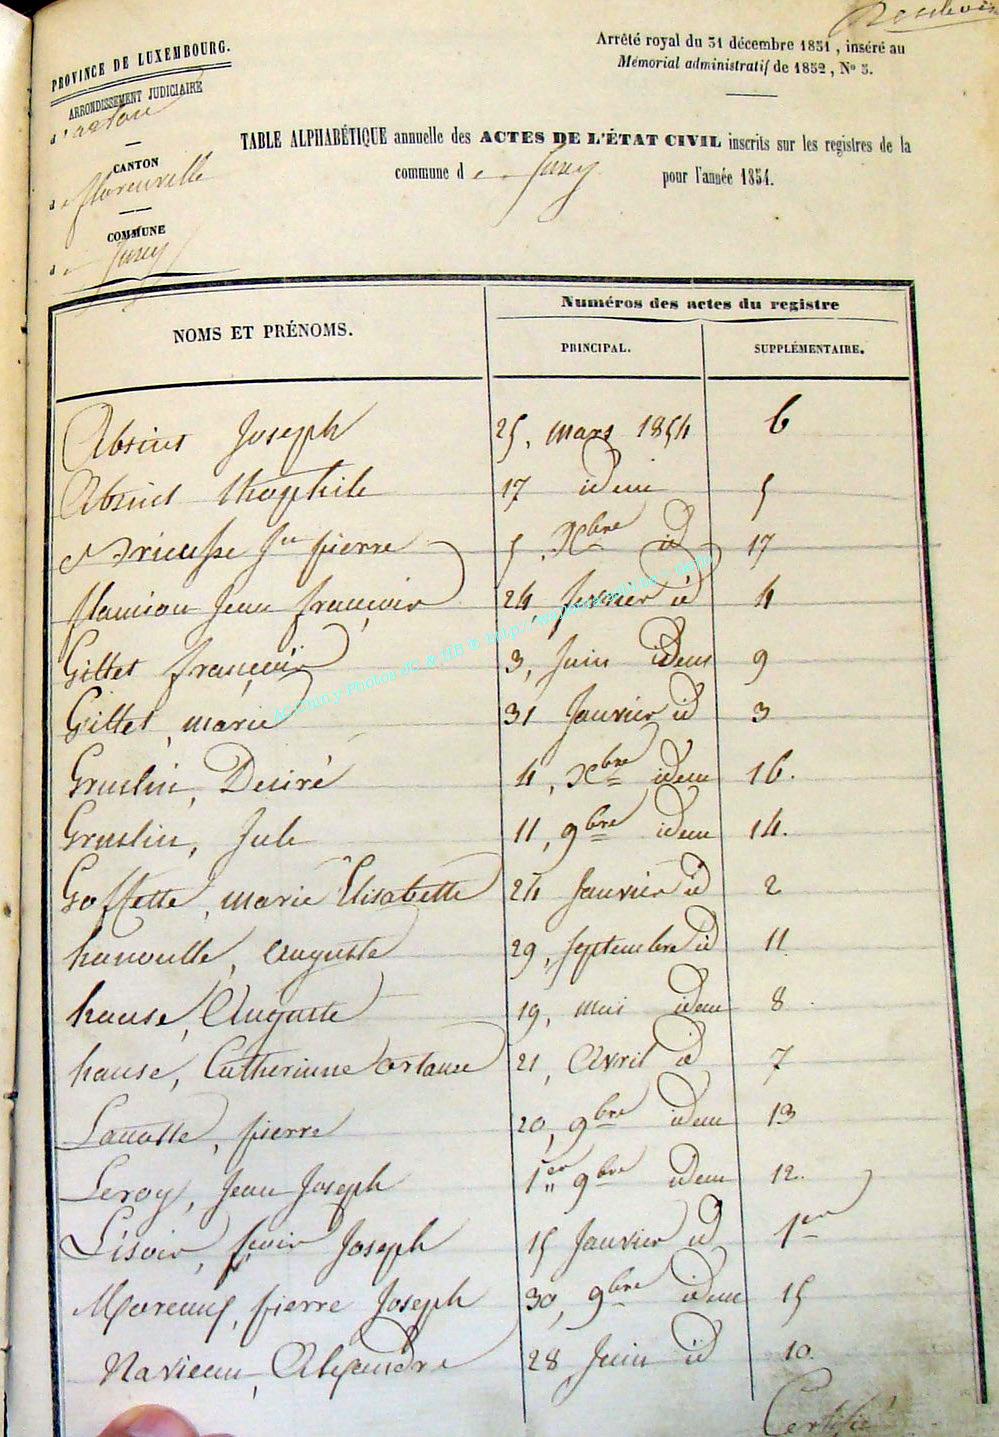 PROVINCE DE LUXEMBOURG.
ARRONDISSEMENT JUDICIAIRE
d'arlon
CANTON
de florenville
COMMUNE
de Jusey
Arrêté royal du 31 décembre 1851, inséré au
Mémorial administratif de 1852, Nº 3.
TABLE ALPHABÉTIQUE annuelle des ACTES DE L'ÉTAT CIVIL inscrits sur les registres de la
commune de Jusey pour l'année 1854.
NOMS ET PRÉNOMS.
Numéros des actes du registre
PRINCIPAL. SUPPLÉMENTAIRE.
Joseph 25, mars 1854 6
théophile 17 idem 5
Jn pierre 5, Xbre id 17
flamion Jean françois 24, fevrier id 4
Gillet françois 3, Juin idem 9
Gillet, marie 31 Janvier id 3
Gruslin, Desiré 4, Xbre idem 16.
Gruslin, Jule 11, 9bre idem 14.
Goffette, marie Elisabette 24 Janvier id 2
hanoulle, Auguste 29, septembre id 11
hause, Auguste 19, mai idem 8
hause, Catherinne 21, Avril id 7
Lavatte, pierre 20, 9bre idem 13
Leroy, Jean Joseph 1er 9bre idem 12.
Lisoir, Joseph 15 Janvier id 1er
pierre Joseph 30, 9bre idem 15
Navieau, Alexandre 28 Juin id 10.
Certifié